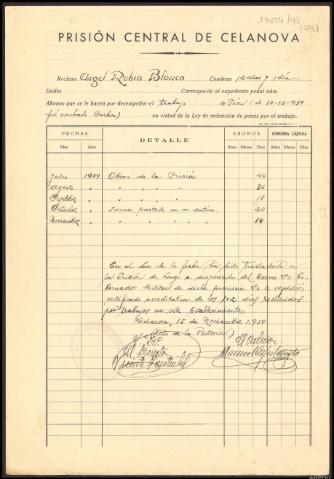 PRISIÓN CENTRAL DE CELANOVA
Recluso Angel Rubio Blanco Condena 12 años y 1 día
Delito Corresponde al expediente penal núm.
Abonos que se le hacen por desempeñar el trabajo de
fué nombrado Barbero) en virtud de la Ley de redención de penas por el trabajo.
FECHAS DETALLE ABONOS CONDENA LÍQUIDA
Mes Año Años Meses Días Años Meses Días
Julio 1939 Obras de la Prisión 24
Agosto " " " " " 26
" " " " " 18
Octubre " Servicio prestado en su destino. 20
Noviembre " " " " " 14
En el día de la fecha ha sido trasladado a
la Prisión de a disposición del Excmo Sr. Go-
bernador Militar de dicha provincia. Se le expidió
certificado acreditativo de los 102 días redimidos
por trabajos en este Establecimiento.
Celanova, 15 de Noviembre 1.939
(Año de la Victoria)
Vº Bº
El Director